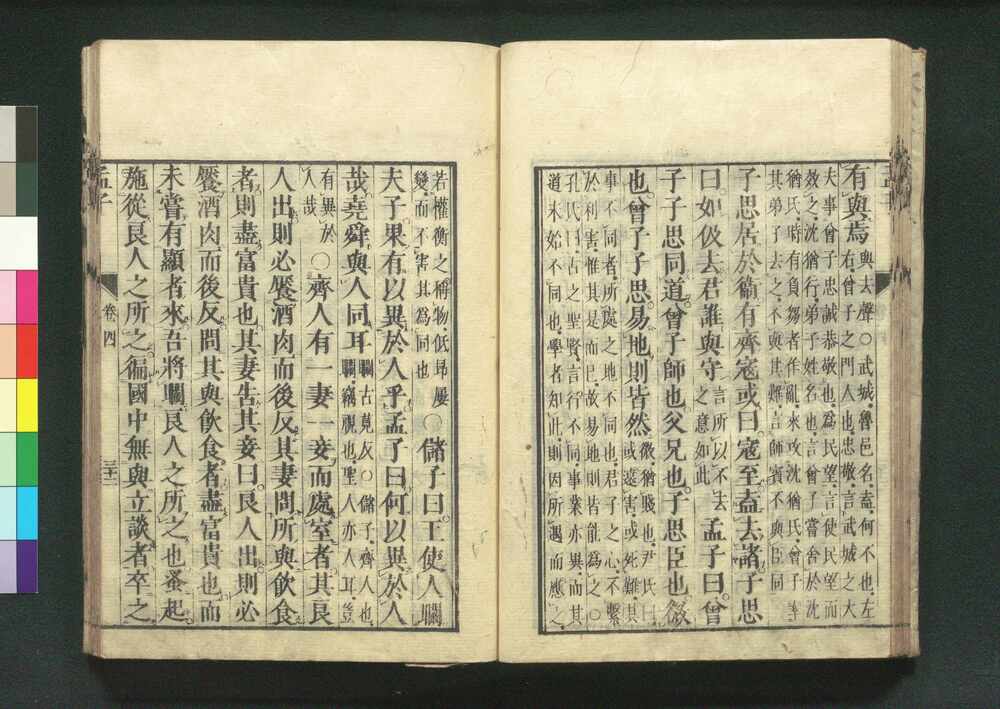 有與焉
與去聲○武城魯邑名盍何不也左
右曾子之門人也忠敬言武城之大
夫事曾子忠誠恭敬也為民望言使民望而
效之沈猶行弟子姓名也言曾子嘗舍於沈
猶氏時有負芻者作亂來攻沈猶氏曾子率
其弟子去之不與其難言師賓不與臣同
子思居於衛有齊寇或曰寇至盍去諸子思
曰如伋去君誰與守
言所以不去
之意如此
孟子曰曾
子子思同道曾子師也父兄也子思臣也微
也曾子子思易地則皆然
微猶賤也尹氏曰
或遠害或死難其
事不同者所處之地不同也君子之心不繫
於利害惟其是而已故易地則皆能為之○
孔氏曰古之聖賢言行不同事業亦異而其
道未始不同也學者知此則因所遇而應之
若權衡之稱物低昂屢
變而不害其為同也
○儲子曰王使人瞯
夫子果有以異於人乎孟子曰何以異於人
哉堯舜與人同耳
瞯古莧反○儲子齊人也
瞯竊視也聖人亦人耳豈
有異於
人哉
○齊人有一妻一妾而處室者其良
人出則必饜酒肉而後反其妻問所與飲食
者則盡富貴也其妻告其妾曰良人出則必
饜酒肉而後反問其與飲食者盡富貴也而
未嘗有顯者來吾將瞯良人之所之也蚤起
施從良人之所之徧國中無與立談者卒之
孟子
卷四
三十二